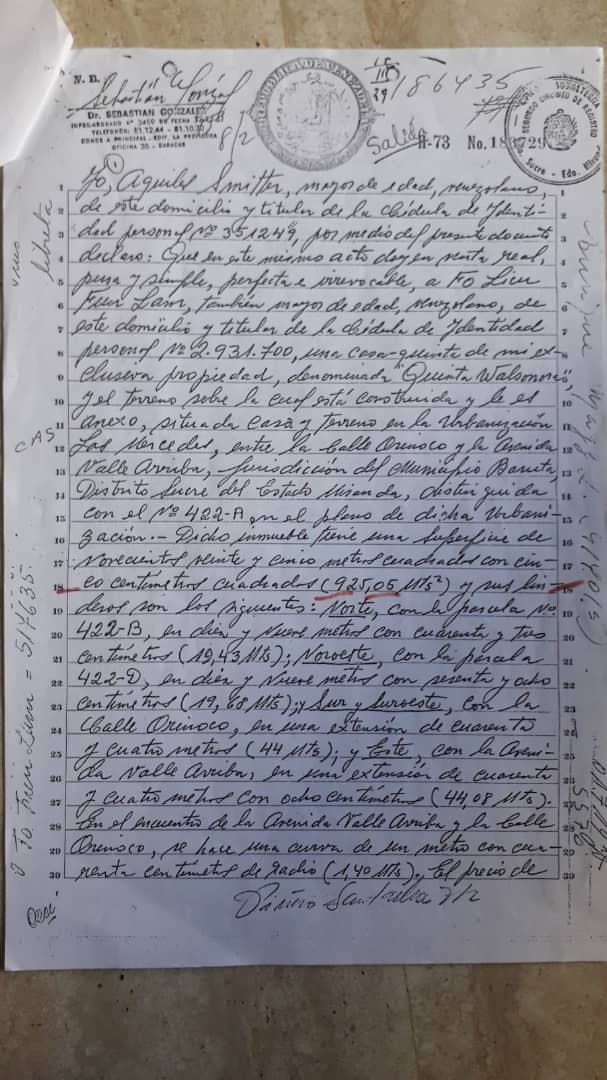 N. D.
Sebastián González
Dr. SEBASTIAN GONZALEZ
OFICINA 35 - CARACAS
8/2
REPUBLICA DE VENEZUELA
186435
Saledo
H-73 No. 183729
1 Yo, Aquiles Smitter, mayor de edad, venezolano,
2 de este domicilio y titular de la Cédula de Identi-
3 dad personal Nº 351249, por medio del presente documento
4 declaro: Que en este mismo acto doy en venta real,
5 pura y simple, perfecta e irrevocable, a Fo Lieu
6 Fun Lam, también mayor de edad, venezolano, de
7 este domicilio y titular de la Cédula de Identidad
8 personal Nº 2.931.700, una casa-quinta de mi ex-
9 clusiva propiedad, denominada "Quinta Walsonoras",
10 y el terreno sobre la cual está construida y le es
11 anexo, situada casa y terreno en la Urbanización
12 Las Mercedes, entre la Calle Orinoco y la Avenida
13 Valle Arriba, Jurisdicción del Municipio Baruta,
14 Distrito Sucre del Estado Miranda, distinguida
15 con el Nº 422-A, en el plano de dicha Urbani-
16 zación.- Dicho inmueble tiene una superficie de
17 Novecientos veinte y cinco metros cuadrados con cin-
18 co centímetros cuadrados (925,05 Mts²) y sus lin-
19 deros son los siguientes: Norte, con la parcela Nº
20 422-B, en diez y nueve metros con cuarenta y tres
21 centímetros (19,43 Mts); Noroeste, con la parcela
22 422-D, en diez y nueve metros con sesenta y ocho
23 centímetros (19,68 Mts); y Sur y Suroeste, con la
24 Calle Orinoco, en una extensión de cuarenta
25 y cuatro metros (44 Mts); y Este, con la Aveni-
26 da Valle Arriba, en una extensión de cuarenta
27 y cuatro metros con ocho centímetros (44,08 Mts).
28 En el encuentro de la Avenida Valle Arriba y la Calle
29 Orinoco, se hace una curva de un metro con cua-
30 renta centímetros de radio (1,40 Mts). El precio de
libreta
CAS
= 517635
5576